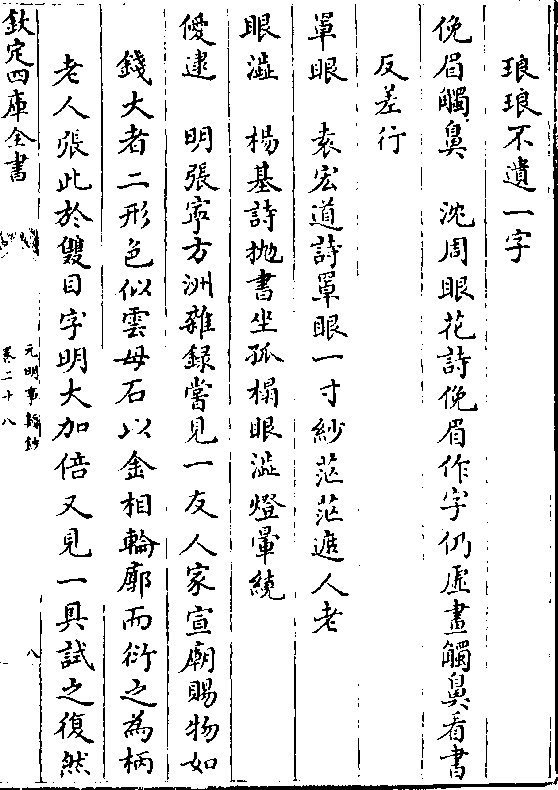 琅琅不遺一字
俛眉觸鼻　沈周眼花詩俛眉作字仍虛畫觸鼻看書
反差行
罩眼　袁宏道詩罩眼一寸紗茫茫遮人老
眼澁　楊基詩抛書坐孤榻眼澁燈暈繞
僾逮　明張寧方洲雜録嘗見一友人家宣廟賜物如
錢大者二形色似雲母石以金相輪廓而衍之為柄
老人張此於雙目字明大加倍又見一具試之復然
欽定四庫全書
元明事類鈔
卷二十八
八